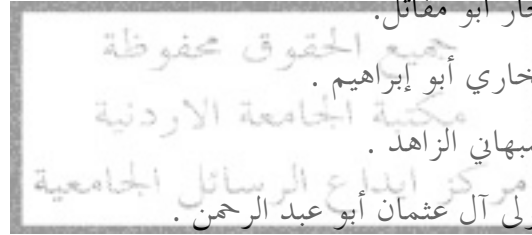 خار أبو مقاتل.
جميع الحقوق محفوظة
خاري أبو إبراهيم .
مكتبة الجامعة الاردنية
سبهاني الزاهد .
مركز ايداع الرسائل الجامعية
ولى آل عثمان أبو عبد الرحمن .